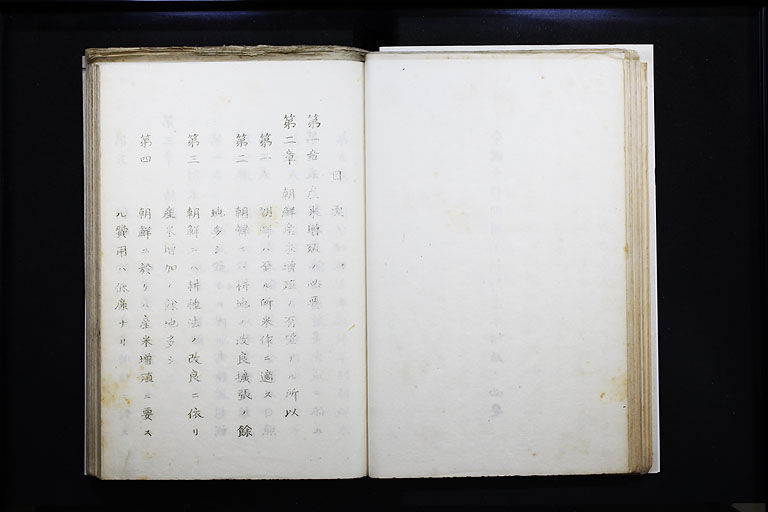 目次
第一章 産米増殖ノ必要
第二章 朝鮮産米増殖ノ有望ナル所以
第一 朝鮮ハ至ル所米作ニ適ス
第二 朝鮮ニハ耕地ノ改良拡張ノ餘
地多シ
第三 朝鮮ニハ耕種法ノ改良ニ依リ
産米増加ノ餘地多シ
第四 朝鮮ニ於ケル産米増殖ニ要ス
ル費用ハ低廉ナリ